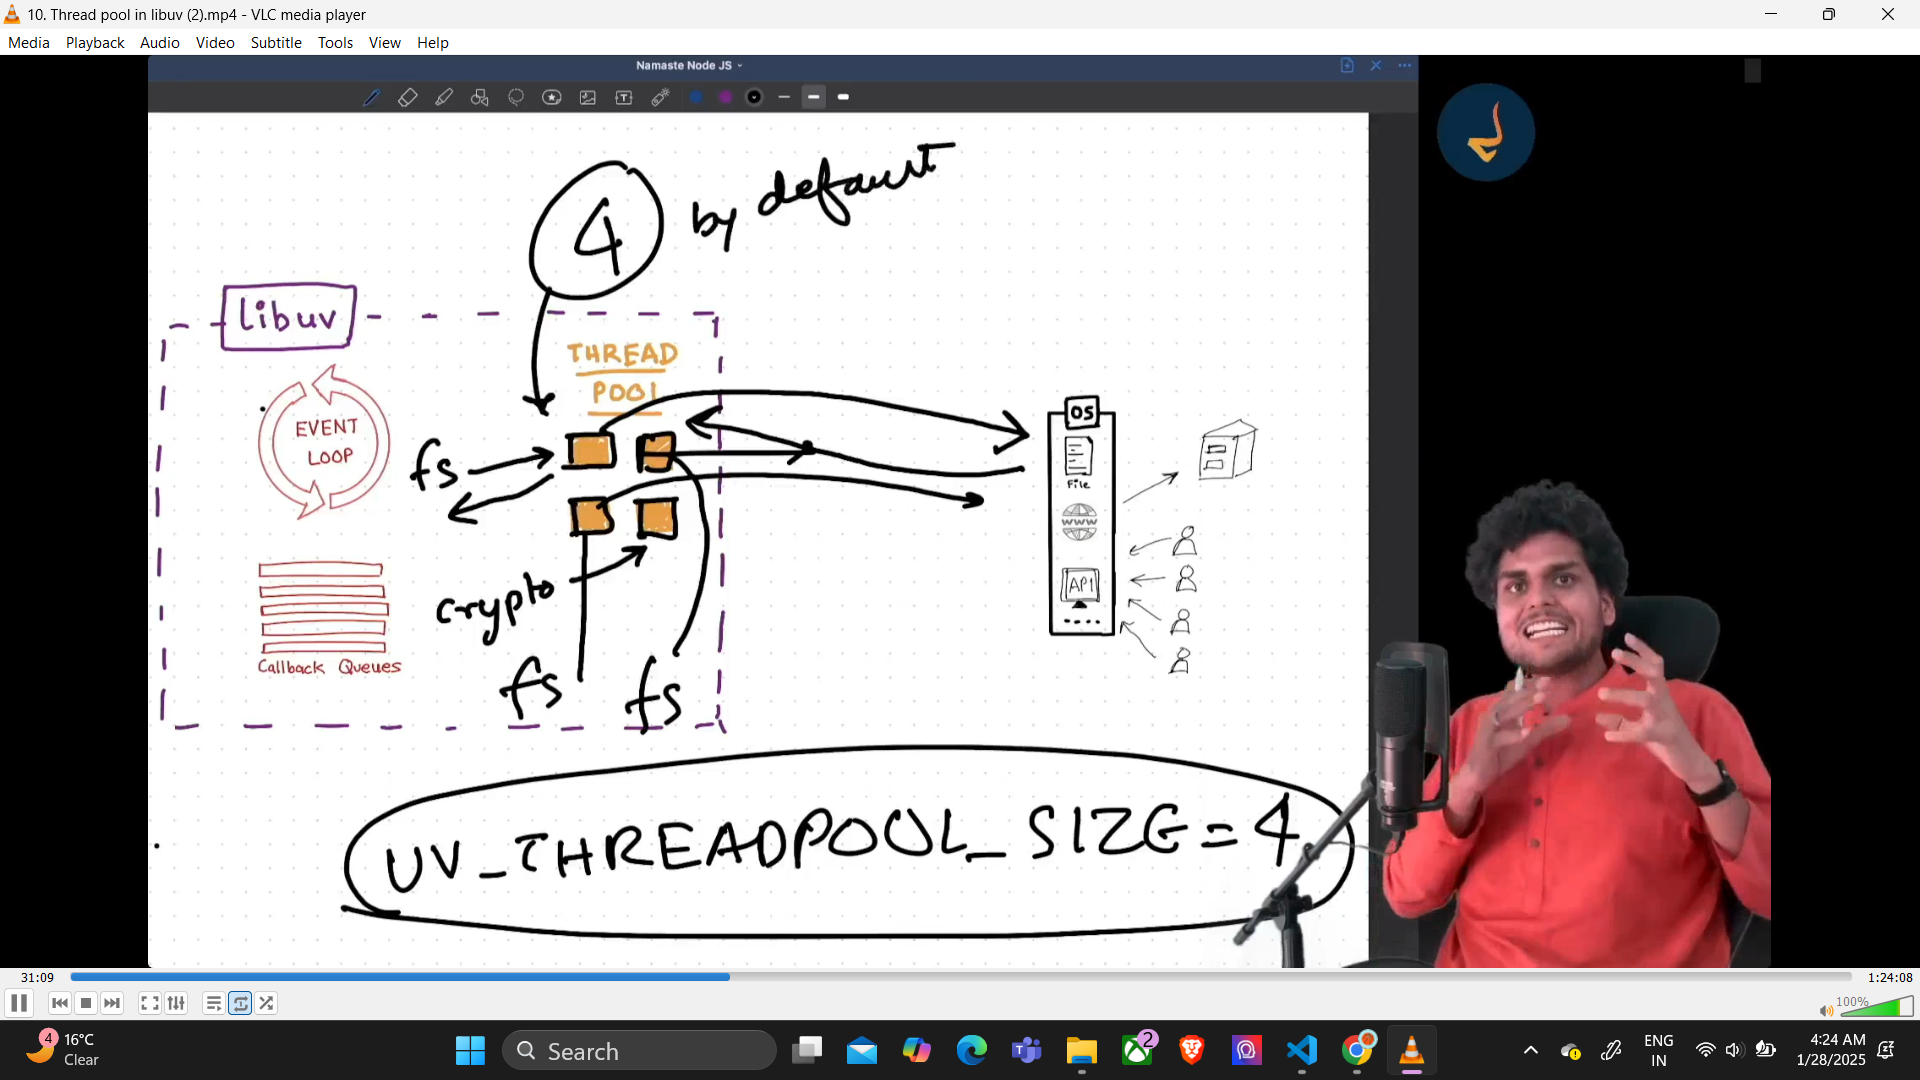 10. Thread pool in libuv (2).mp4 - VLC media player
Media Playback Audio Video Subtitle Tools View Help
Namaste Node JS
4 by default
libuv
THREAD
POOL
EVENT
LOOP
fs
OS
File
WWW
API
crypto
Callback Queues
fs fs
UV_THREADPOOL_SIZE=4
31:09
1:24:08
100%
4
16°C
Clear
Search
2
ENG
IN
4:24 AM
1/28/2025